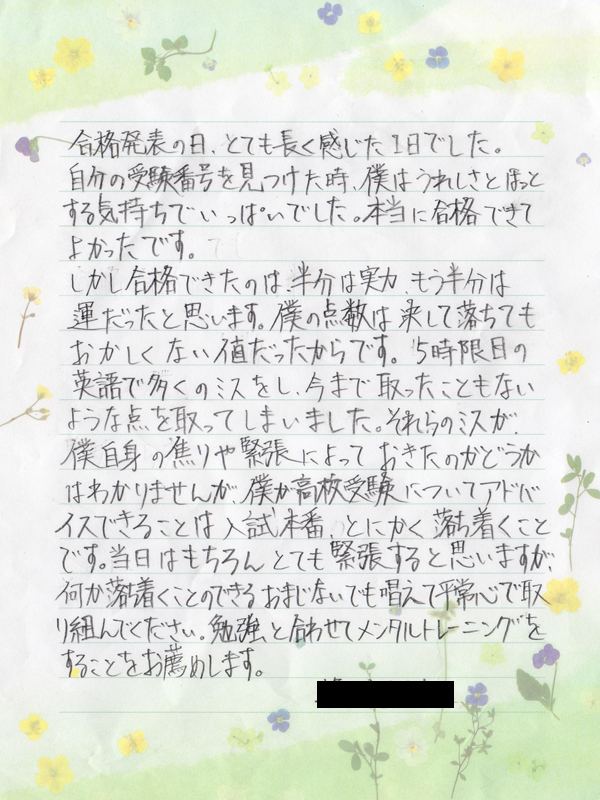 合格発表の日、とても長く感じた1日でした。
自分の受験番号を見つけた時、僕はうれしさとほっと
する気持ちでいっぱいでした。本当に合格できて
よかったです。
しかし合格できたのは、半分は実力、もう半分は
運だったと思います。僕の点数は決して落ちても
おかしくない値だったからです。5時限目の
英語で多くのミスをし、今まで取ったこともない
ような点を取ってしまいました。それらのミスが、
僕自身の焦りや緊張によっておきたのかどうか
はわかりませんが、僕が高校受験についてアドバ
イスできることは入試本番、とにかく落ち着くこと
です。当日はもちろんとても緊張すると思いますが、
何か落ち着くことのできるおまじないでも唱えて平常心で取
り組んでください。勉強と合わせてメンタルトレーニングを
することをお薦めします。